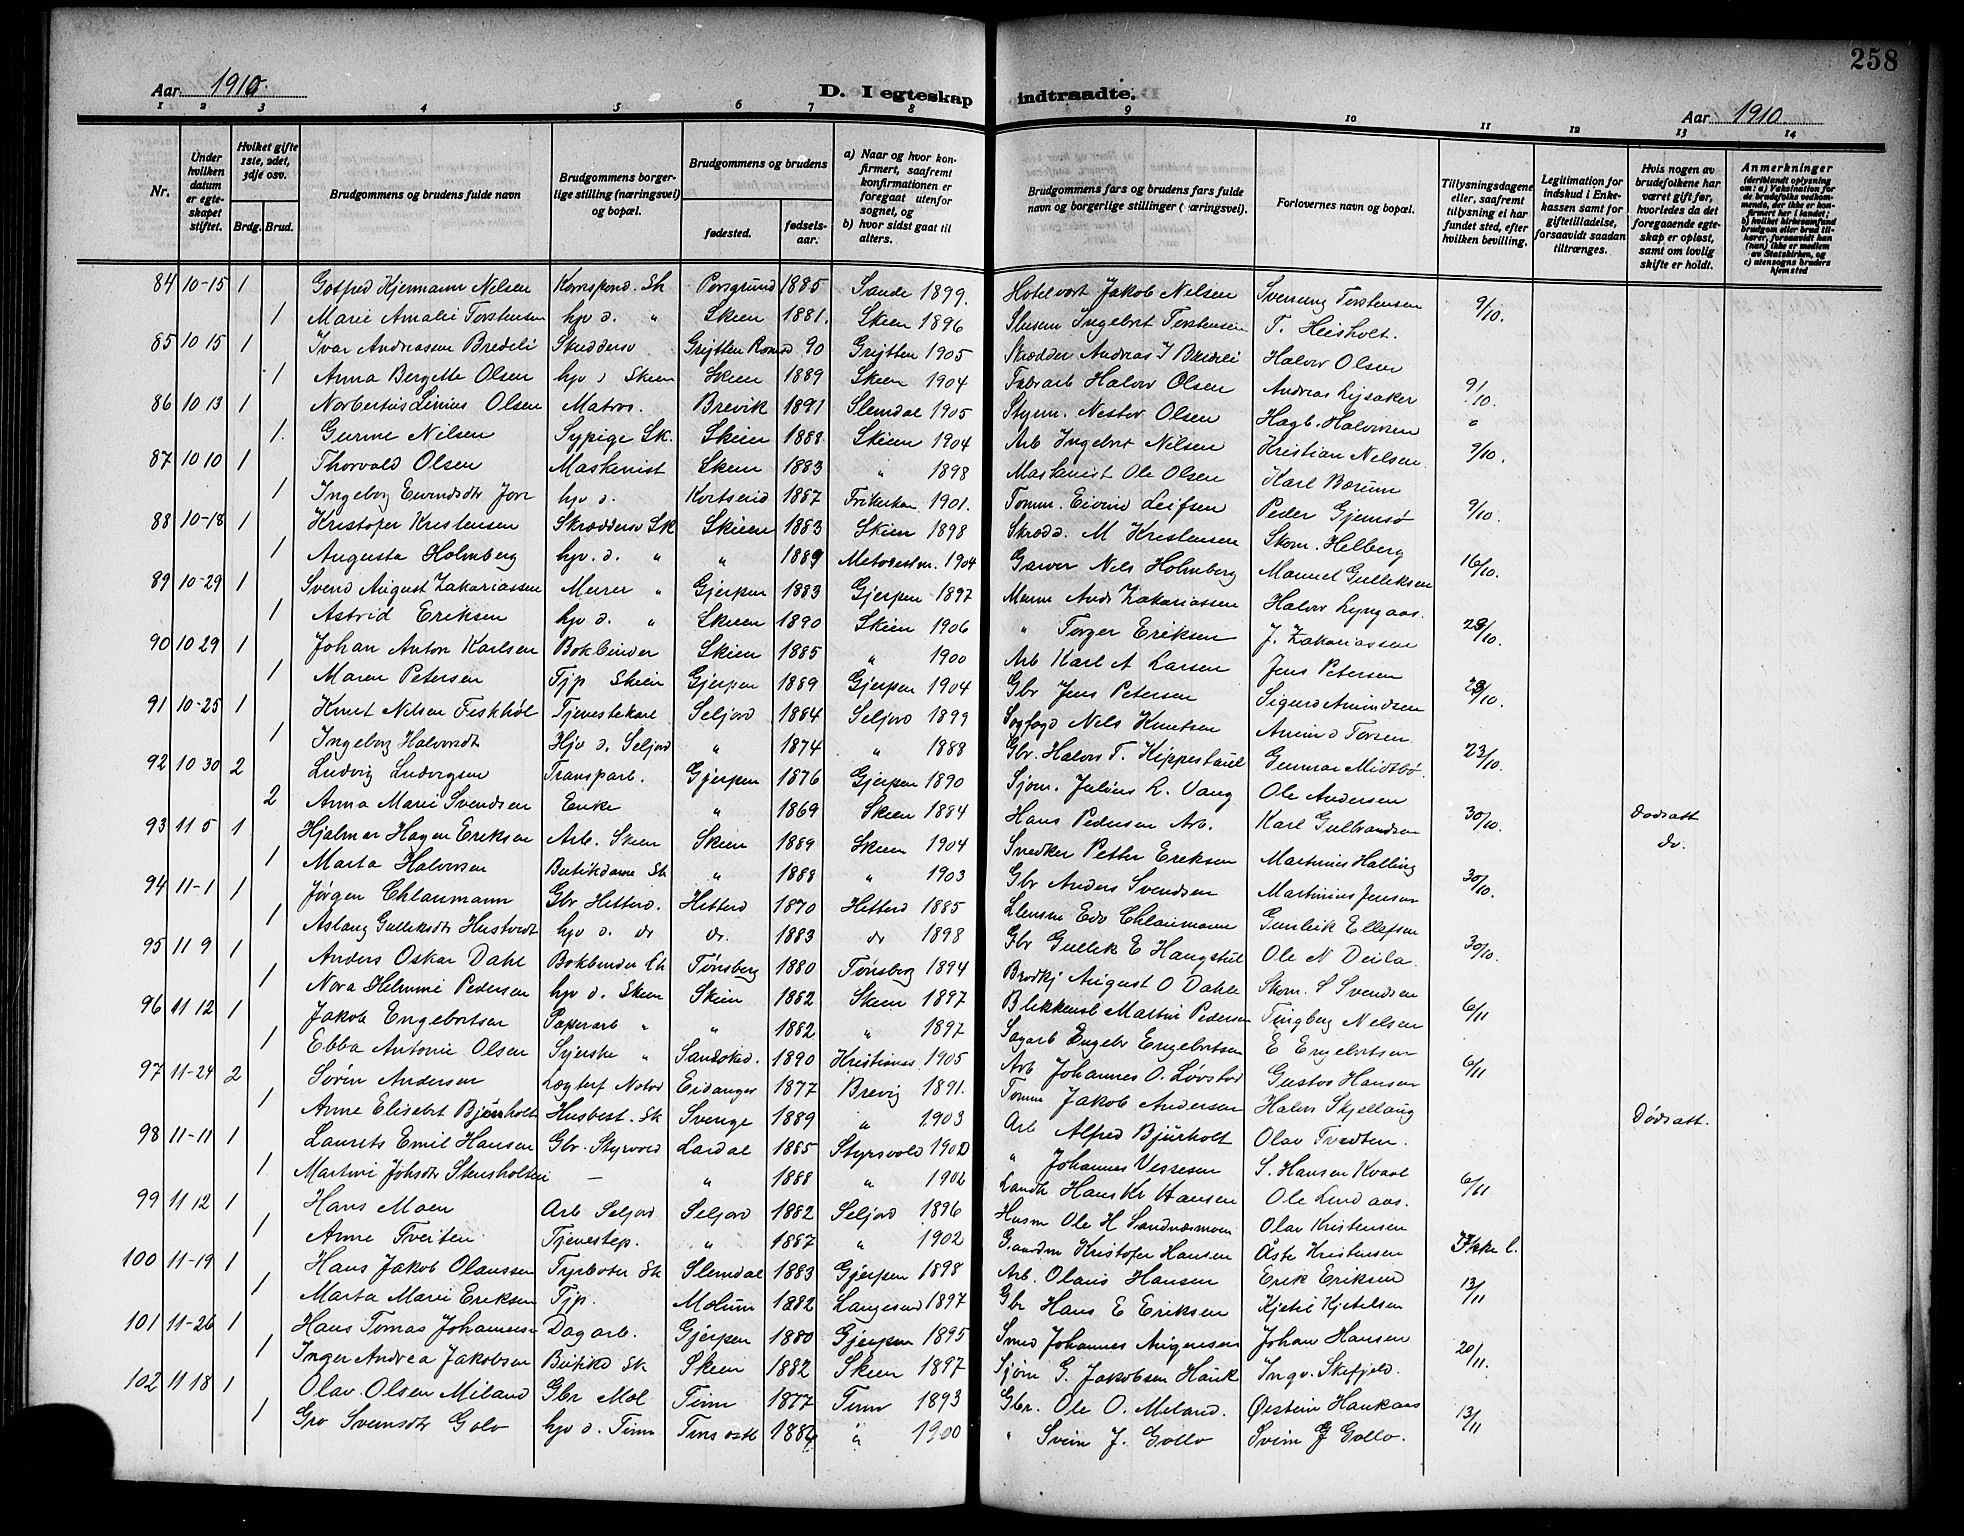 258
Aar 1910.
D. I egteskap indtraadte.
Aar 1910.
1 2 3 4 5 6 7 8 9 10 11 12 13 14
Nr.
Under hvilken datum er egteskapet stiftet.
Hvilket gifte 1ste, 2det, 3dje osv.
Brdg. Brud.
Brudgommens og brudens fulde navn
Brudgommens borgerlige stilling (næringsvei) og bopæl.
Brudgommens og brudens
fødested.
fødselsaar.
a) Naar og hvor konfirmert, saafremt konfirmationen er foregaat utenfor sognet, og
b) hvor sidst gaat til alters.
Brudgommens fars og brudens fars fulde navn og borgerlige stillinger (næringsvei).
Forlovernes navn og bopæl.
Tillysningsdagene eller, saafremt tillysning ei har fundet sted, efter hvilken bevilling.
Legitimation for indskud i Enkekassen samt for giftetilladelse, forsaavidt saadan tiltrænges.
Hvis nogen av brudefolkene har været gift før, hvorledes da det foregaaende egteskap er opløst, samt om lovlig skifte er holdt.
Anmerkninger
(deriblandt oplysning om: a) Vaksination for de brudefolks vedkommende, der ikke er konfirmert her i landet; b) hvilket kirkesamfund brudgom eller brud tilhører, forsaavidt han (hun) ikke er medlem av Statskirken, og c) utensogns bruders hjemsted
84 10-15 1 Gotfred Kjermann Nelsen Korrespond. Sk Porsgrund 1885 Sande 1899. Hotelvært Jakob Nelsen Svenung Torstensen 9/10.
1 Marie Amalie Torstensen hjv d. " Skien 1881. Skien 1896 Slusem Ingebret Torstensen T. Heisholt.
85 10 15 1 Ivar Andreasen Bredeli Skræddersv Grytten Romsd 90 Grytten 1905 Skrædder Andreas I Bredeli Halvor Olsen
1 Anna Bergette Olsen hjv d Skien Skien 1889 Skien 1904 Fabrarb Halvor Olsen Andreas Lysaker 9/10.
86 10 13 1 Norbertus Linius Olsen Matros. Brevik 1891 Slemdal 1905 Styrm. Nestor Olsen Hagb. Halvorsen "
1. Gurine Nilsen Sypige Sk. Skien 1888 Skien 1904 Arb Ingebret Nilsen Kristian Nelsen 9/10.
87 10 10 1 Thorvald Olsen Maskinist Skien 1883 " 1898 Maskinist Ole Olsen Karl Bærum
1 Ingeborg Eivindsdtr hjv d. 1887 Frikirken 1901. Tomm. Eivind Leifsen Peder Gjemsø 9/10.
88 10-18 1 Kristofer Kristensen Skræddersv Sk Skien 1883 Skien 1898 Skræd. M Kristensen Skom. Helberg
1 Augusta Holmberg hjv. d. " " 1889 Metodistm. 1904 Garver Nels Holmberg Manuel Gulliksen 16/10.
89 10-29 1 Svend August Zakariassen Murer " Gjerpen 1883 Gjerpen 1897 Murer Andr Zakariassen Halvor Lyngaas.
1 Astrid Eriksen hjv d. " Skien 1890 Skien 1906 " Torger Eriksen J. Zakariassen 23/10.
90 10 29 1 Johan Anton Karlsen Bokbinder Skien 1885 " 1900 Arb Karl A Larsen Jens Petersen
1 Maren Petersen Tjp Skien Gjerpen 1889 Gjerpen 1904 Gbr Jens Petersen Sigurd Amundsen 23/10.
91 10-25 1 Knut Nilsen Fiskhøl Tjenestekarl Seljord 1884 Seljord 1899 Nels Knutsen Amund Torsen
1 Ingeborg Halvorsdt Hjv d. Seljord " 1874 " 1888 Gbr. Halvor T. Kippestaul Gunnar Midtbø. 23/10.
92 10 30 2 Ludvig Ludvigsen Transparb. Gjerpen 1876 Gjerpen 1890 Sjøm. Julius L. Vang Ole Andersen
2 Anna Marie Svendsen Enke " 1869 Skien 1884 Hans Pedersen Arb. Karl Gulbrandsen 30/10. Dødsatt
93 11 5 1 Hjalmar Hagen Eriksen Arb. Skien Skien 1889 Skien 1904 Snedker Petter Eriksen Martinius Halling do.
1 Marta Halvorsen Butikdame Sk " 1888 " 1903 Gbr Anders Svendsen Martinius Jensen 30/10.
94 11-1 1 Jørgen Chlaumann Gbr Hitterd. Hitterd 1870 Hitterd 1885 Lensm Edv Chlaumann Gunleik Ellefsen
1 Aslaug Gulleksdtr Hustvedt hjv d. do do. 1883 do 1898 Gbr Gullek E Haugstul Ole N Deila 30/10.
95 11 9 1 Anders Oskar Dahl Bokbinder Ch Tønsberg 1880 Tønsberg 1894 August O Dahle Skom. S Svendsen
1 Nora Helmine Pedersen hjv d. Skien Skien 1882 Skien 1897 Blikkensl Martin Pedersen Nelsen 6/11
96 11 12 1 Jakob Engebretsen Papirarb " " 1882 " 1897 Sagarb Engebr Engebretsen E Engebretsen
1 Ebba Antonie Olsen Syerske " 1890 Kristiania 1905 Arb Johannes O. Løvstad Gustav Hansen 6/11
97 11-24 2 Sørin Andersen Eidanger 1877 Brevig 1891. Tomm Jakob Andersen Halvor Skjellaug
1 Anne Elisebet Bjürholt Husbest. Sk Sverige 1889 " 1903 Arb Alfred Bjürholt Olav Tvedten. Dødsatt.
98 11-11 1 Laurets Emil Hansen Gbr. Styrvold Lardal 1885 Styrsvold 1900 " Johannes Vessesen S. Hansen Kvaal
1 Martine Johsdtr Stensholten — " 1888 " 1902 Landh Hans Kr Hansen Ole Lindaas. 6/11
99 11 12 1 Hans Moen Arb Seljord Seljord 1882 Seljord 1896 Husm Ole H Sandnæsmoen Olav Kristensen
1 Anne Tveiten Tjenestep. " 1887 " 1902 Gaardm Kristofer Hansen Åste Kristensen Ikke l.
100 11-19 1 Hans Jakob Olaussen Fyrbøter Sk Slemdal 1883 Gjerpen 1898 Arb. Olaus Hansen Erik Eriksen
1 Marta Marie Eriksen Tjp. Molum 1882 Langesund 1897 Gbr Hans E Eriksen Kjetil Kjetelsen 13/11
101 11-26 1 Hans Tomas Johannesen Dagarb. Gjerpen 1880 Gjerpen 1895 Smed Johannes Johan Hansen
1 Inger Andrea Jakobsen Butikd Sk Skien 1882 Skien 1897 Sjøm G. Jakobsen Hauk Ingv. Skifjeld. 20/11.
102 11 18 1 Olav Olsen Miland Gbr Mæl Tinn 1877 Tinn 1893 Gbr. Ole O. Miland. Øistein Haukaas
1 Gro Sveinsdtr Golv hjv d. Tinn 1884 " 1900 " Svein J. Gollv Svein J Gollv. 13/11